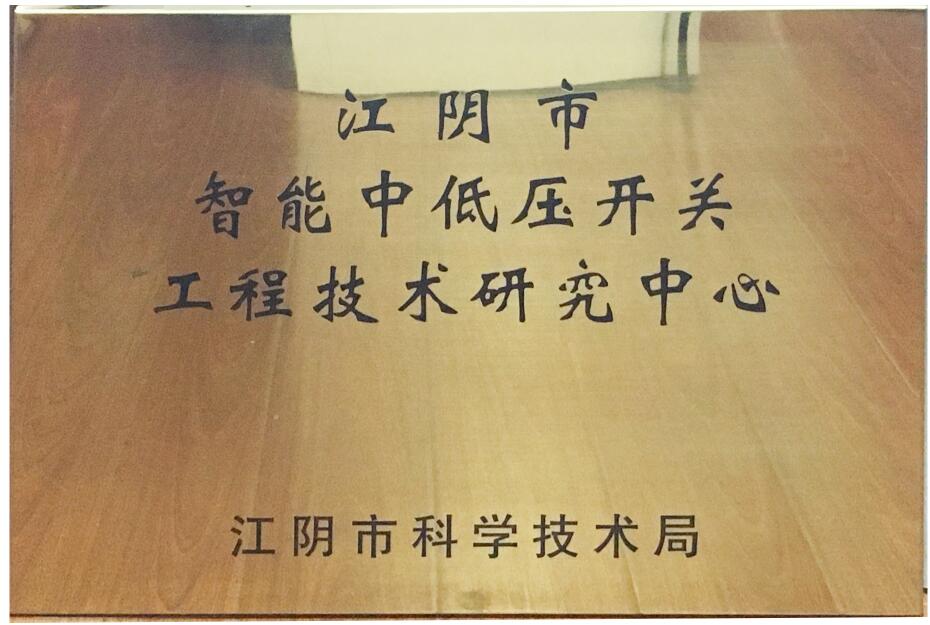 江阴市
智能中低压开关
工程技术研究中心
江阴市科学技术局